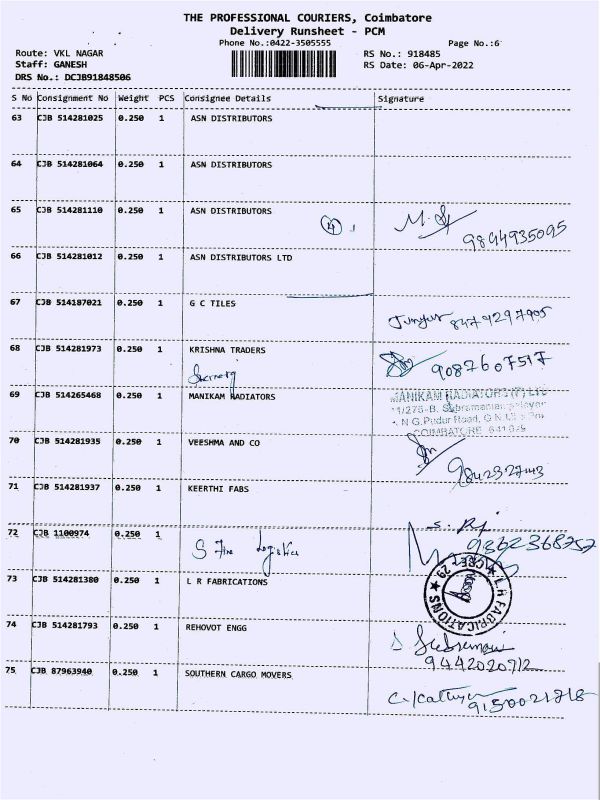 THE PROFESSIONAL COURIERS, Coimbatore
Delivery Runsheet - PCM
Phone No.:0422-3505555 Page No.:6
Route: VKL NAGAR RS No.: 918485
Staff: GANESH RS Date: 06-Apr-2022
DRS No.: DCJB91848506
S No Consignment No Weight PCS Consignee Details Signature
63 CJB 514281025 0.250 1 ASN DISTRIBUTORS
64 CJB 514281064 0.250 1 ASN DISTRIBUTORS
65 CJB 514281110 0.250 1 ASN DISTRIBUTORS
4
9894935095
66 CJB 514281012 0.250 1 ASN DISTRIBUTORS LTD
67 CJB 514187021 0.250 1 G C TILES
8479297905
68 CJB 514281973 0.250 1 KRISHNA TRADERS
9087607517
69 CJB 514265468 0.250 1 MANIKAM RADIATORS
MANIKAM RADIATORS (P) LTD
COIMBATORE
70 CJB 514281935 0.250 1 VEESHMA AND CO
71 CJB 514281937 0.250 1 KEERTHI FABS
72 CJB 1100974 0.250 1
S Logistics
9362368752
73 CJB 514281380 0.250 1 L R FABRICATIONS
L R FABRICATIONS
74 CJB 514281793 0.250 1 REHOVOT ENGG
9442020712
75 CJB 87963940 0.250 1 SOUTHERN CARGO MOVERS
9150021818